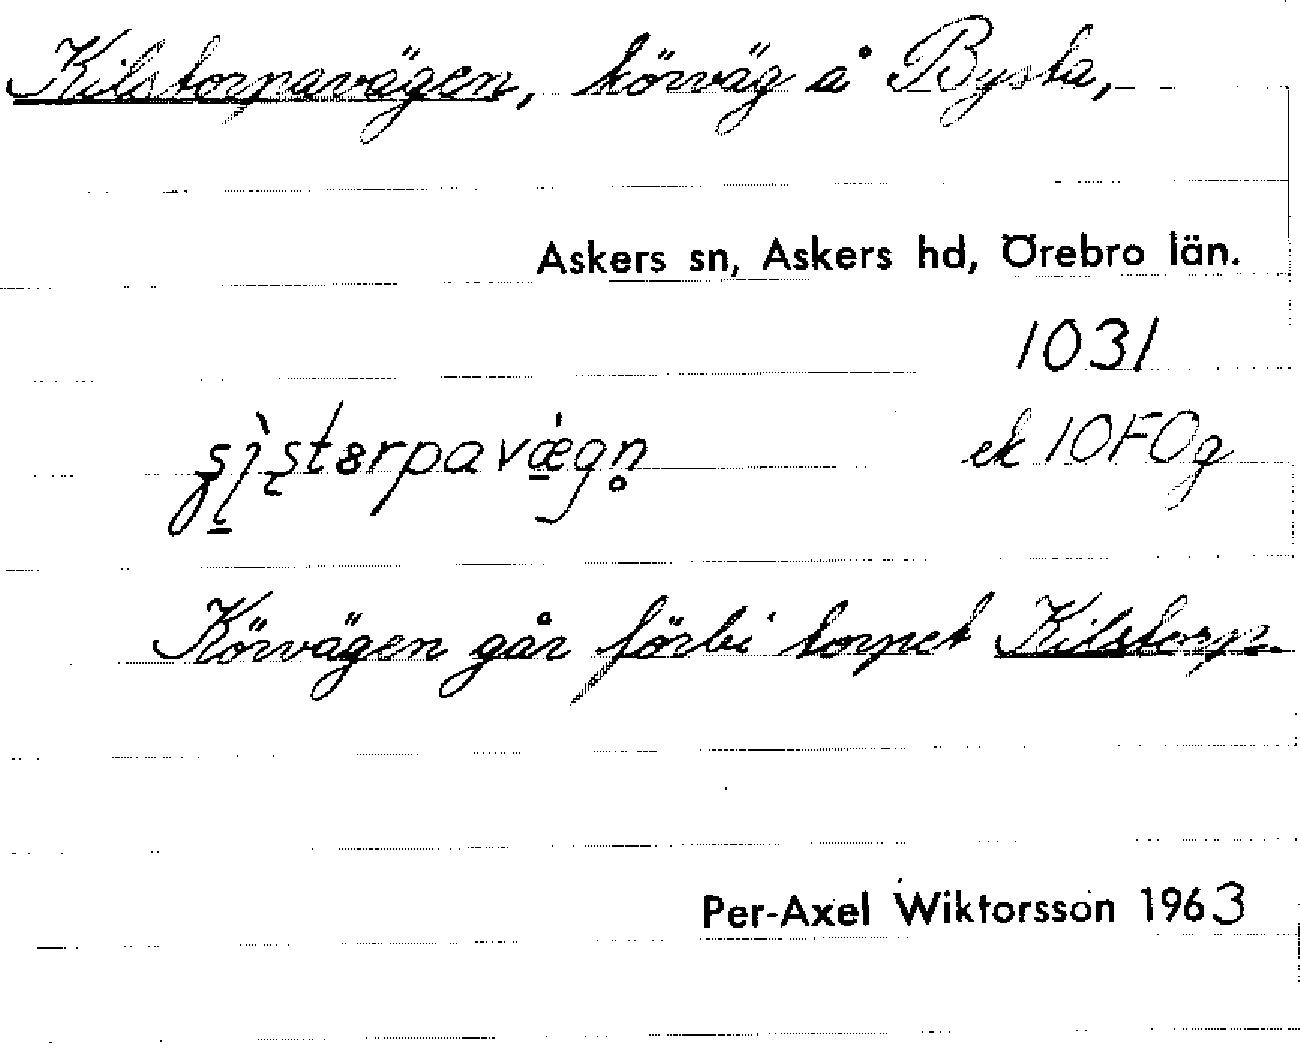 Kilstorpavägen, körväg å Bysta,
Askers sn, Askers hd, Örebro län.
1031
ek 10F0g
Körvägen går förbi torpet Kilstorp.
Per-Axel Wiktorsson 1963